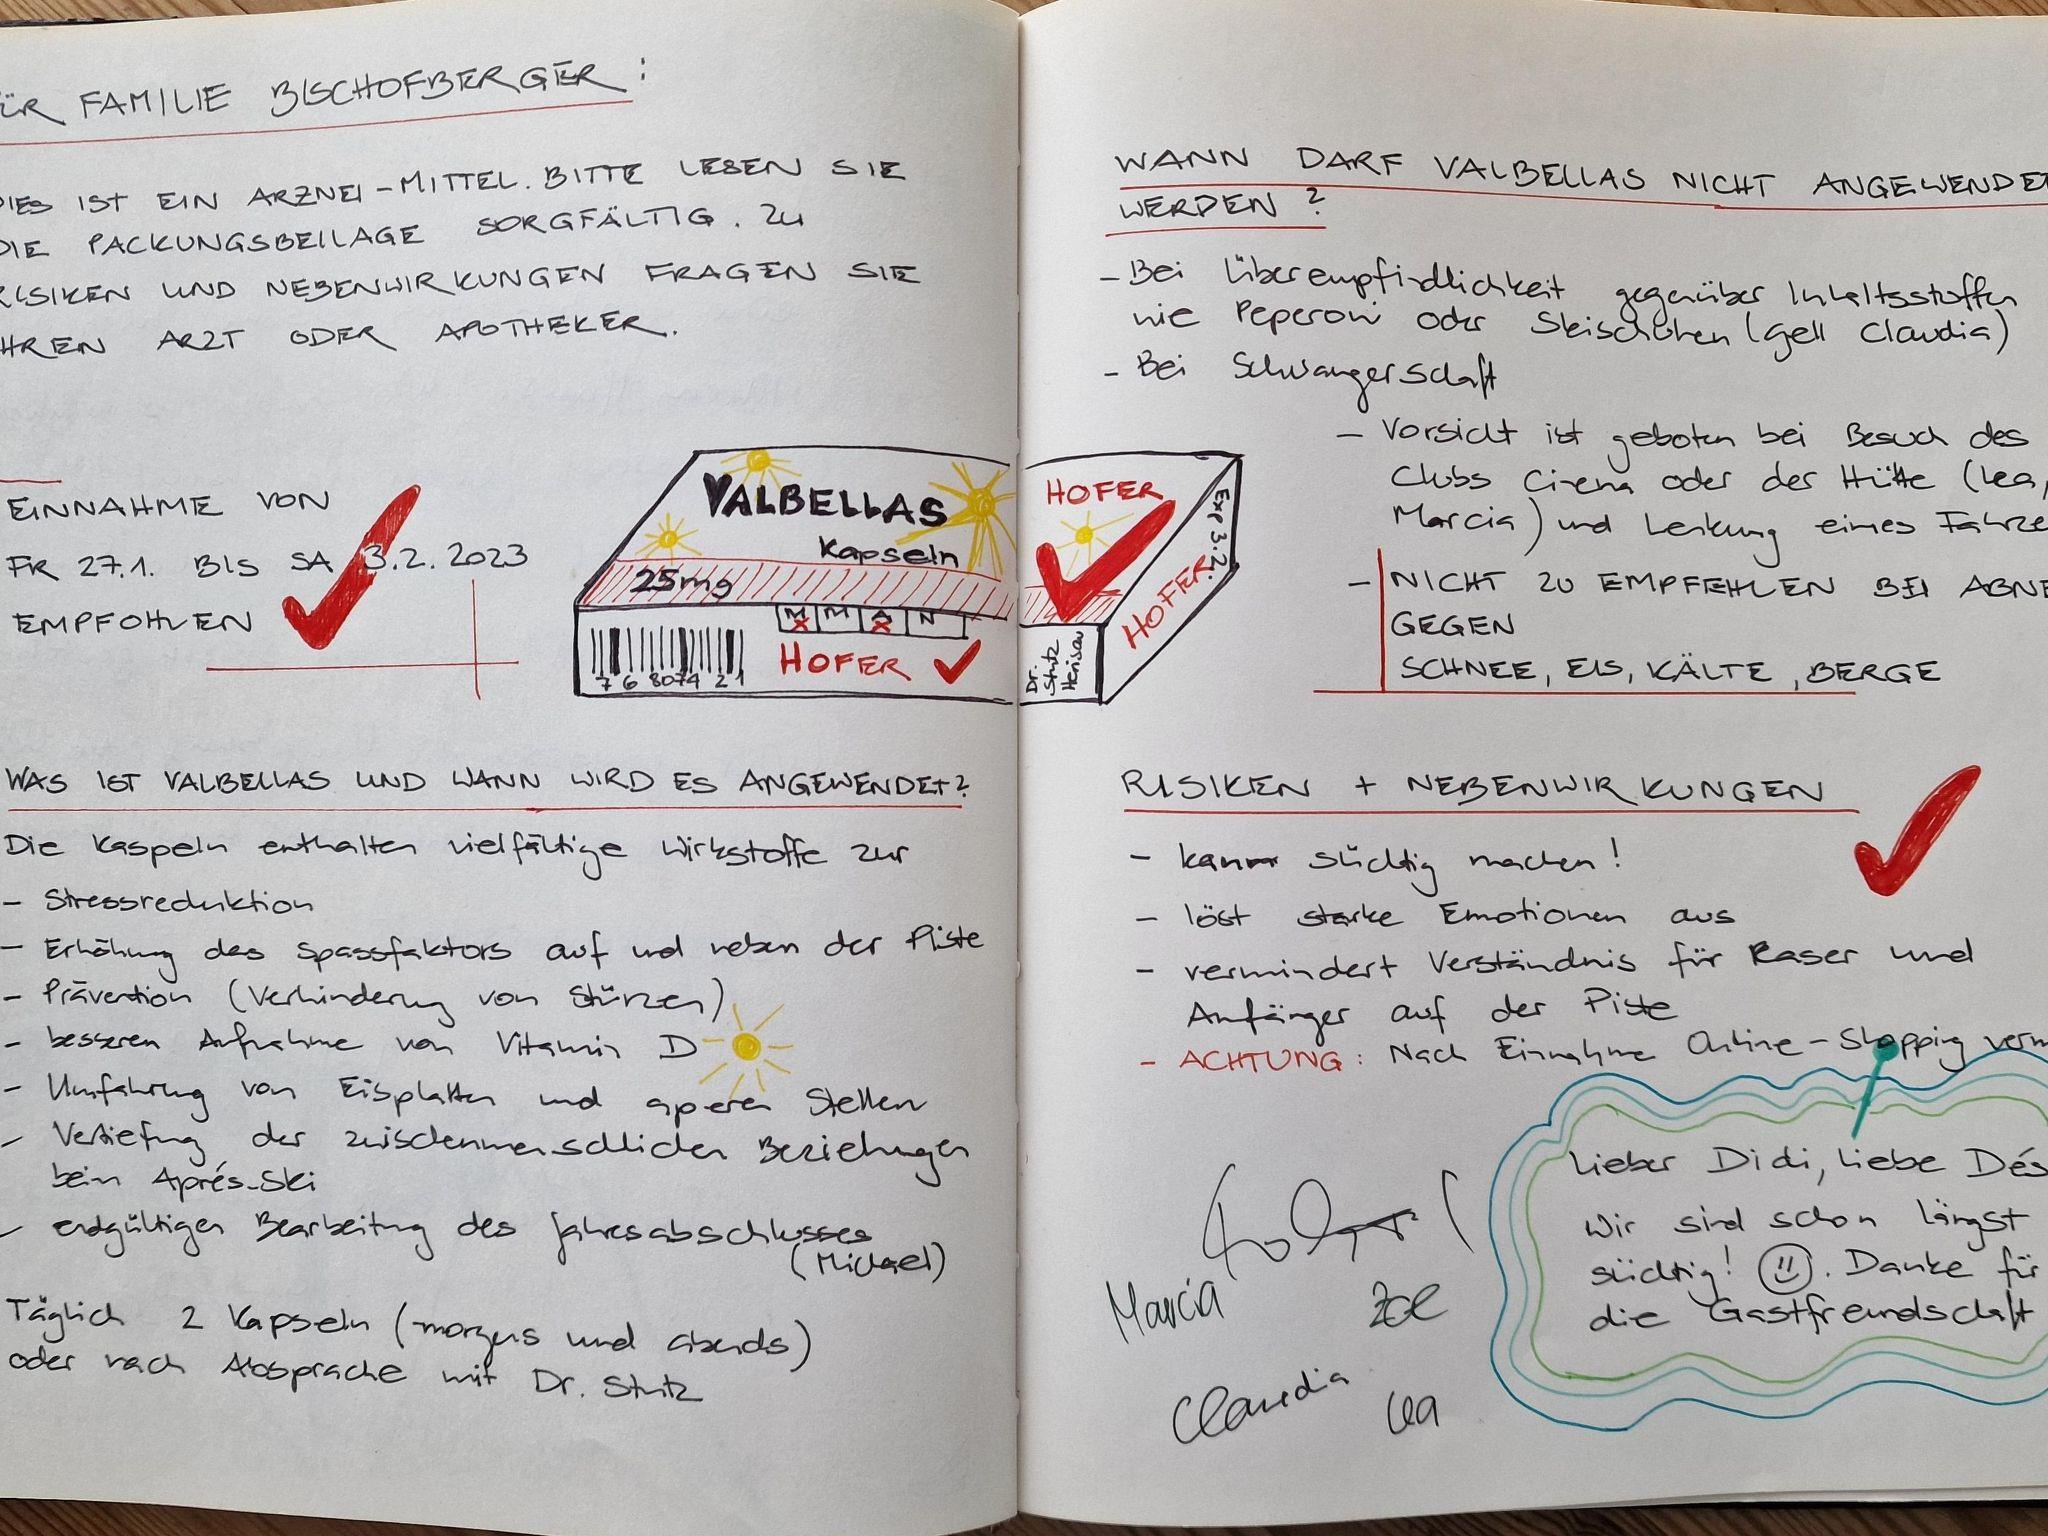 FÜR FAMILIE BISCHOFBERGER:
DIES IST EIN ARZNEI-MITTEL. BITTE LESEN SIE
DIE PACKUNGSBEILAGE SORGFÄLTIG. ZU
RISIKEN UND NEBENWIRKUNGEN FRAGEN SIE
IHREN ARZT ODER APOTHEKER.
EINNAHME VON
FR 27.1. BIS SA 3.2.2023
EMPFOHLEN
VALBELLAS
Kapseln
25mg
M M A N
HOFER
7 6 8074 2 1
WAS IST VALBELLAS UND WANN WIRD ES ANGEWENDET?
Die Kaspeln enthalten vielfältige Wirkstoffe zur
- Stressreduktion
- Erhöhung des Spassfaktors auf und neben der Piste
- Prävention (Verhinderung von Stürzen)
- besseren Aufnahme von Vitamin D
- Umfahrung von Eisplatten und aperen Stellen
- Vertiefung der zwischenmenschlichen Beziehungen
beim Aprés-Ski
- endgültigen Bearbeitung des Jahresabschlusses
(Michael)
Täglich 2 Kapseln (morgens und abends)
oder nach Absprache mit Dr. Stutz
WANN DARF VALBELLAS NICHT ANGEWENDET
WERDEN?
- Bei Überempfindlichkeit gegenüber Inhaltsstoffen
wie Peperoni oder Skischuhen (gell Claudia)
- Bei Schwangerschaft
- Vorsicht ist geboten bei Besuch des
Clubs Cinema oder der Hütte (Lea,
Marcia) und Lenkung eines Fahrze
- NICHT ZU EMPFEHLEN BEI ABNE
GEGEN
SCHNEE, EIS, KÄLTE, BERGE
HOFER
Exp 3.2.
HOFER
Dr. Stutz Herisau
RISIKEN + NEBENWIRKUNGEN
- kann süchtig machen!
- löst starke Emotionen aus
- vermindert Verständnis für Raser und
Anfänger auf der Piste
- ACHTUNG: Nach Einnahme Online-Shopping verm
Lieber Didi, liebe Dés
Wir sind schon längst
süchtig! Danke für
die Gastfreundschaft
Marcia Zoe
Claudia Lea